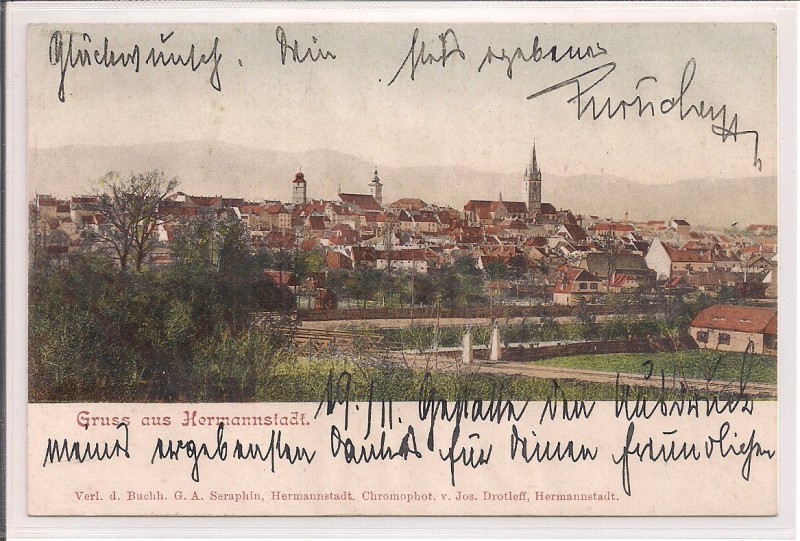 Glückwunsch, Dein stets ergebener
Gruss aus Hermannstadt.
19./II. Gestatte den Ausdruck
meines ergebensten Dankes für Deinen freundlichen
Verl. d. Buchh. G. A. Seraphin, Hermannstadt. Chromophot. v. Jos. Drotleff, Hermannstadt.